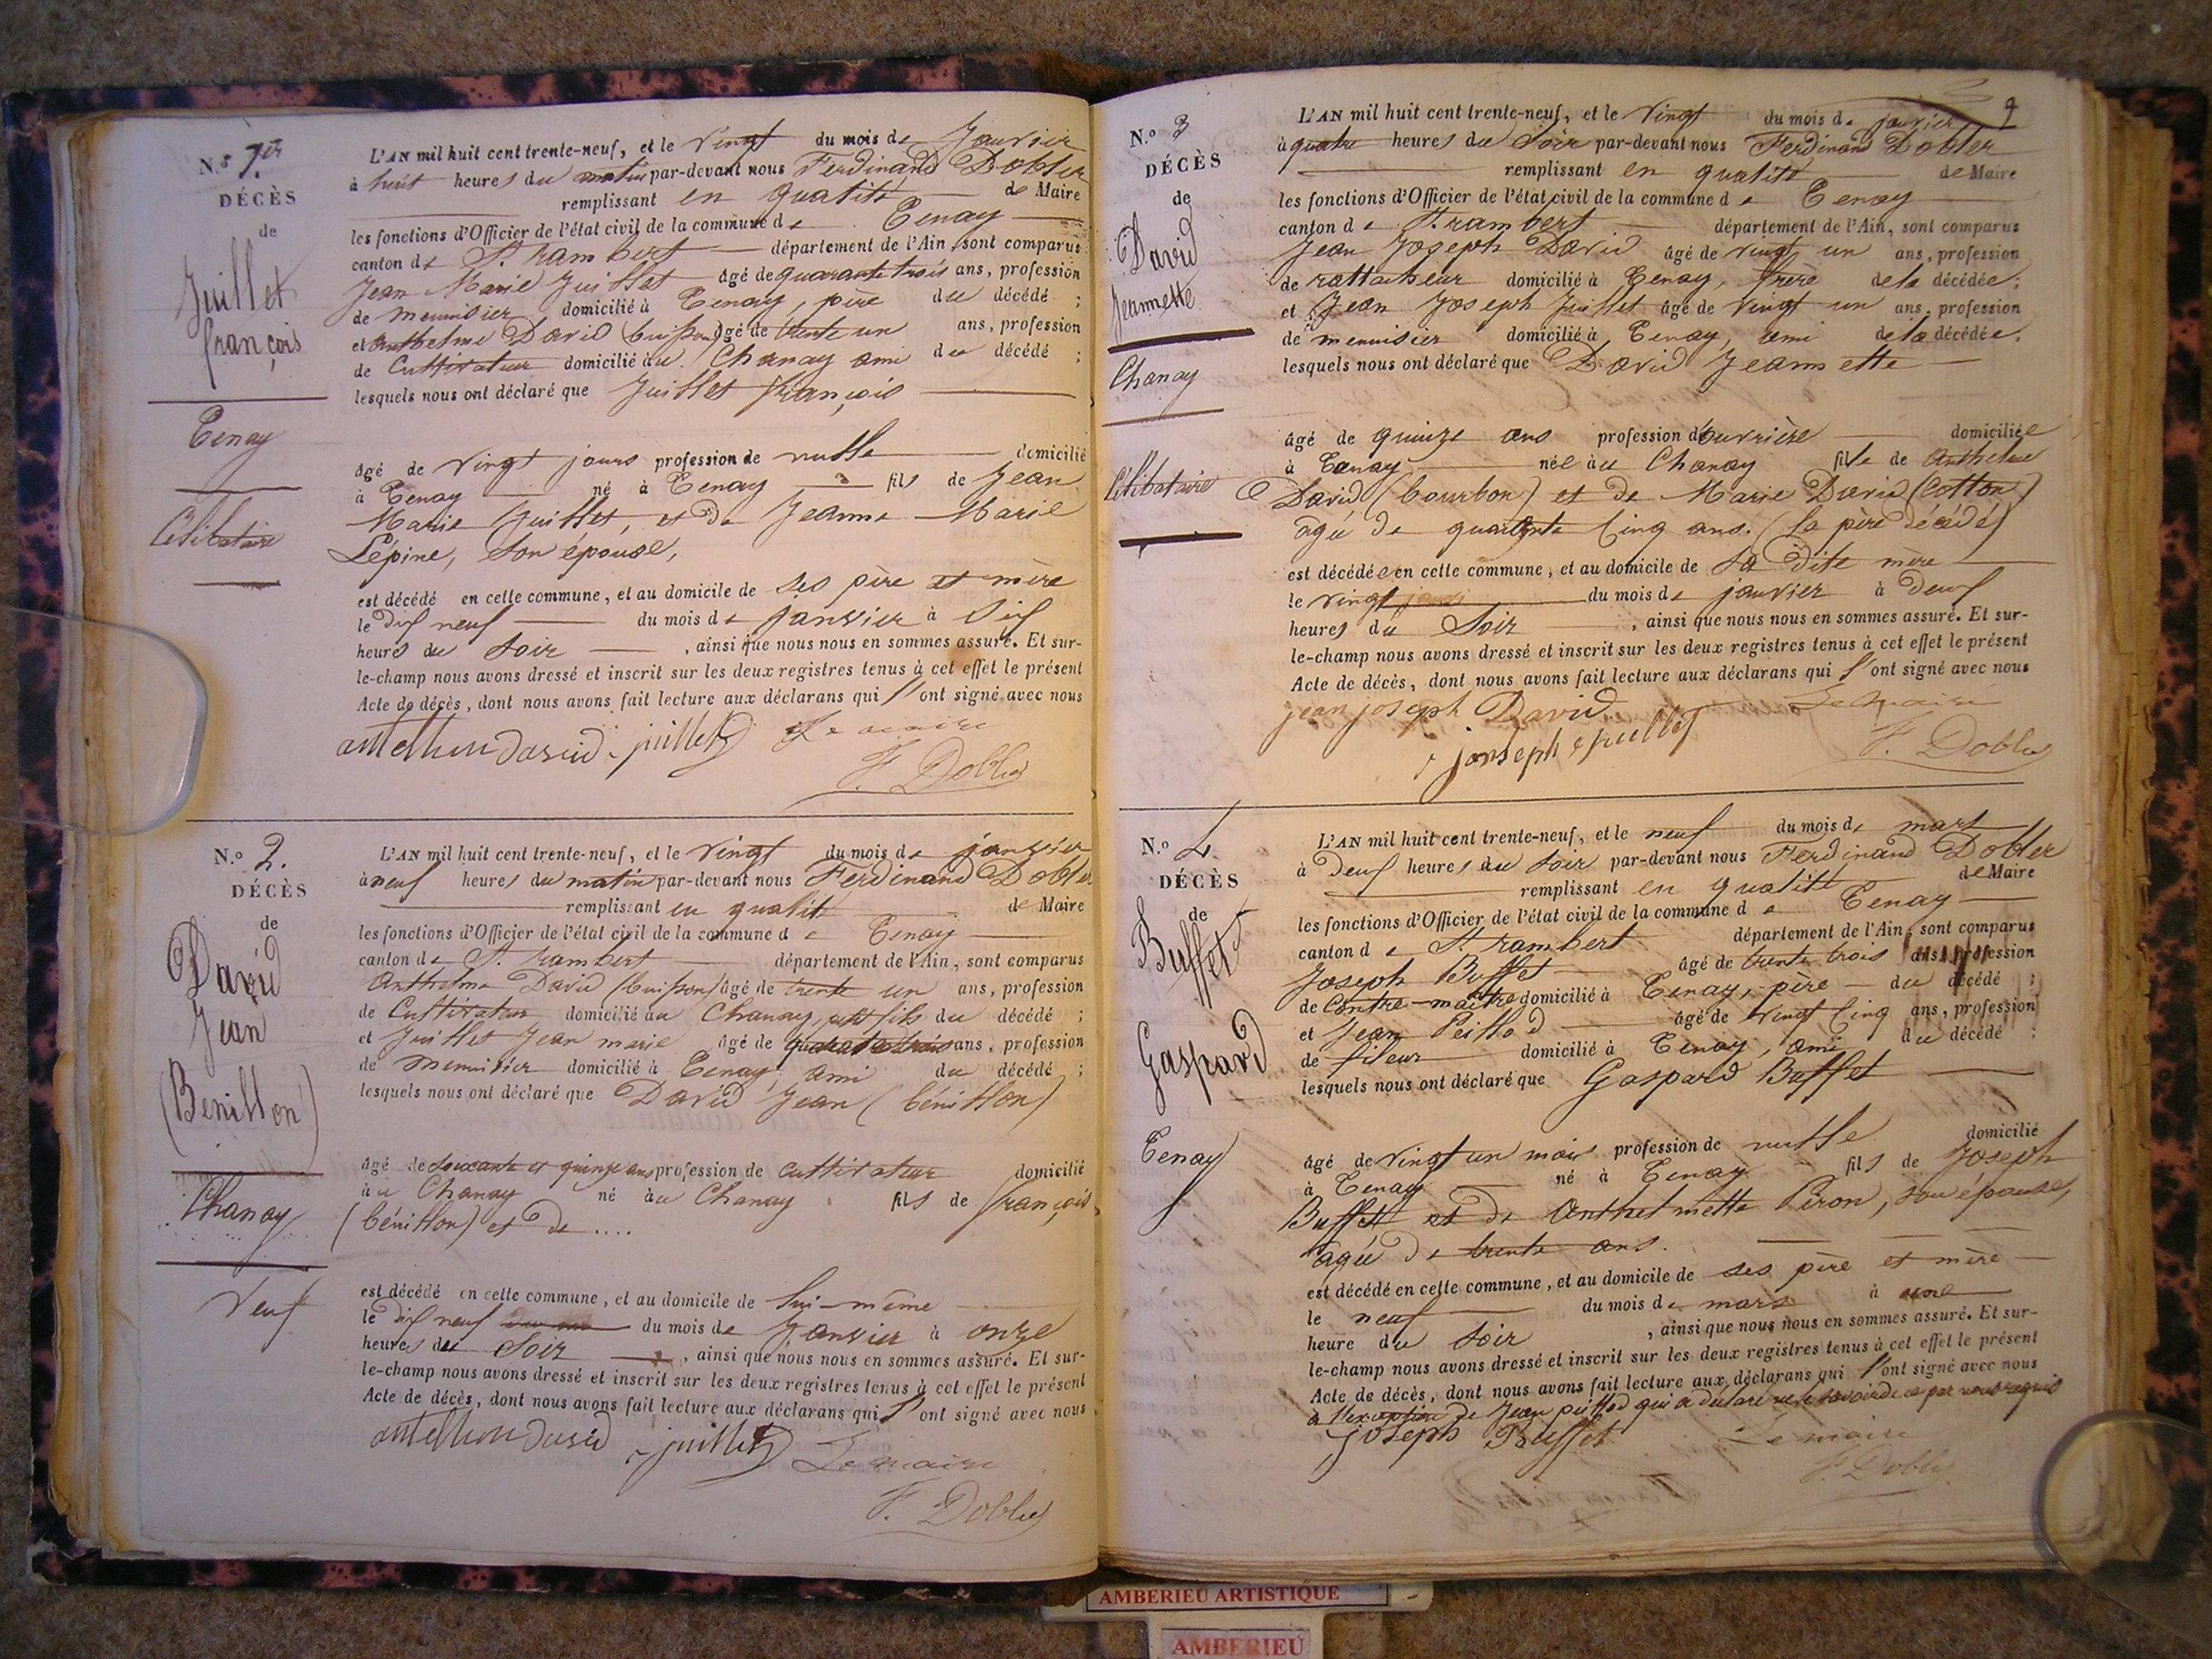 N.o 1er
DÉCÈS
de
Juillet
françois
Tenay
Célibataire
L'AN mil huit cent trente-neuf, et le Vingt du mois de Janvier
à huit heures du matin par-devant nous Ferdinand Dobler
remplissant en qualité de Maire
les fonctions d'Officier de l'état civil de la commune de Tenay
canton de St. rambert département de l'Ain, sont comparus
Jean Marie Juillet âgé de quarante trois ans, profession
de menuisier domicilié à Tenay, père du décédé ;
et anthelme David (buisson) âgé de trente un ans, profession
de Cultivateur domicilié au Chanay ami du décédé ;
lesquels nous ont déclaré que Juillet françois
âgé de vingt jours profession de nulle domicilié
à Tenay né à Tenay fils de Jean
Marie Juillet, et de Jeanne Marie
Lépine, son épouse,
est décédé en cette commune, et au domicile de ses père et mère
le dix neuf du mois de Janvier à six
heures du soir , ainsi que nous nous en sommes assuré. Et sur-
le-champ nous avons dressé et inscrit sur les deux registres tenus à cet effet le présent
Acte de décès, dont nous avons fait lecture aux déclarans qui l'ont signé avec nous
david juillet Le maire
F. Dobler
N.o 2.
DÉCÈS
de
David
Jean
(Bénillon)
Chanay
Veuf
L'AN mil huit cent trente-neuf, et le Vingt du mois de janvier
à neuf heures du matin par-devant nous Ferdinand Dobler
remplissant en qualité de Maire
les fonctions d'Officier de l'état civil de la commune de Tenay
canton de St. rambert département de l'Ain, sont comparus
Anthelme David (buisson) âgé de trente un ans, profession
de Cultivateur domicilié au Chanay, petit fils du décédé ;
et Juillet Jean marie âgé de quarante trois ans, profession
de menuisier domicilié à Tenay, ami du décédé ;
lesquels nous ont déclaré que David Jean (bénillon)
âgé de soixante et quinze ans profession de cultivateur domicilié
au Chanay né au Chanay fils de françois
(bénillon) et de ....
est décédé en cette commune, et au domicile de lui-même
le dix neuf du mois de Janvier à onze
heures du Soir , ainsi que nous nous en sommes assuré. Et sur-
le-champ nous avons dressé et inscrit sur les deux registres tenus à cet effet le présent
Acte de décès, dont nous avons fait lecture aux déclarans qui l'ont signé avec nous
juillet Le maire
F. Dobler
9
N.o 3
DÉCÈS
de
David
Jeannette
Chanay
Célibataire
L'AN mil huit cent trente-neuf, et le Vingt du mois de janvier
à quatre heures du Soir par-devant nous Ferdinand Dobler
remplissant en qualité de Maire
les fonctions d'Officier de l'état civil de la commune de Tenay
canton de St. rambert département de l'Ain, sont comparus
Jean Joseph David âgé de vingt un ans, profession
de rattacheur domicilié à Tenay, frère de la décédée ;
et Jean Joseph Juillet âgé de Vingt un ans, profession
de menuisier domicilié à Tenay, ami de la décédée.
lesquels nous ont déclaré que David Jeannette
âgé de quinze ans profession d'ouvrière domiciliée
à Tenay née au Chanay fille de Anthelme
David (bourbon) et de Marie David (Cotton)
agée de quarante Cinq ans. (la père décédé)
est décédée en cette commune, et au domicile de sa dite mère
le vingt du mois de janvier à deux
heures du Soir , ainsi que nous nous en sommes assuré. Et sur-
le-champ nous avons dressé et inscrit sur les deux registres tenus à cet effet le présent
Acte de décès, dont nous avons fait lecture aux déclarans qui l'ont signé avec nous
jean joseph David Le maire
F. Dobler
N.o 4.
DÉCÈS
de
Buffet
Gaspard
Tenay
L'AN mil huit cent trente-neuf, et le neuf du mois de mars
à Deux heures du soir par-devant nous Ferdinand Dobler
remplissant en qualité de Maire
les fonctions d'Officier de l'état civil de la commune de Tenay
canton de St. rambert département de l'Ain, sont comparus
Joseph Buffet âgé de trente trois ans, profession
de Contre-maître domicilié à Tenay, père du décédé ;
et Jean Peillod âgé de vingt Cinq ans, profession
de fileur domicilié à Tenay, ami du décédé ;
lesquels nous ont déclaré que Gaspard Buffet
âgé de vingt un mois profession de nulle domicilié
à Tenay né à Tenay fils de Joseph
Buffet et de Anthelmette Péron, son épouse,
agée de trente ans.
est décédé en cette commune, et au domicile de ses père et mère
le neuf du mois de mars à une
heure du soir , ainsi que nous nous en sommes assuré. Et sur-
le-champ nous avons dressé et inscrit sur les deux registres tenus à cet effet le présent
Acte de décès, dont nous avons fait lecture aux déclarans qui l'ont signé avec nous
à l'exception de Jean peillod qui a déclaré ne le savoir de ce par nous requis
joseph Buffet Le maire
F. Dobler
AMBERIEU ARTISTIQUE
AMBERIEU